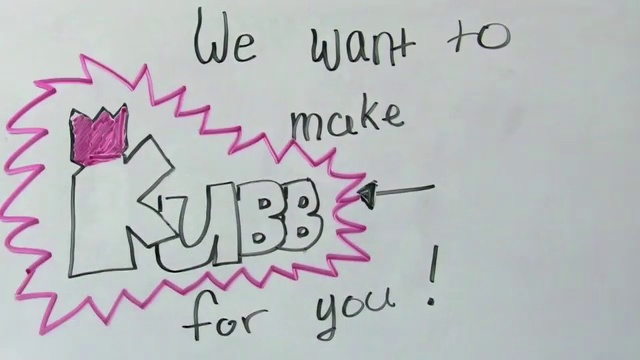 We want to
make
KUBB
for you!